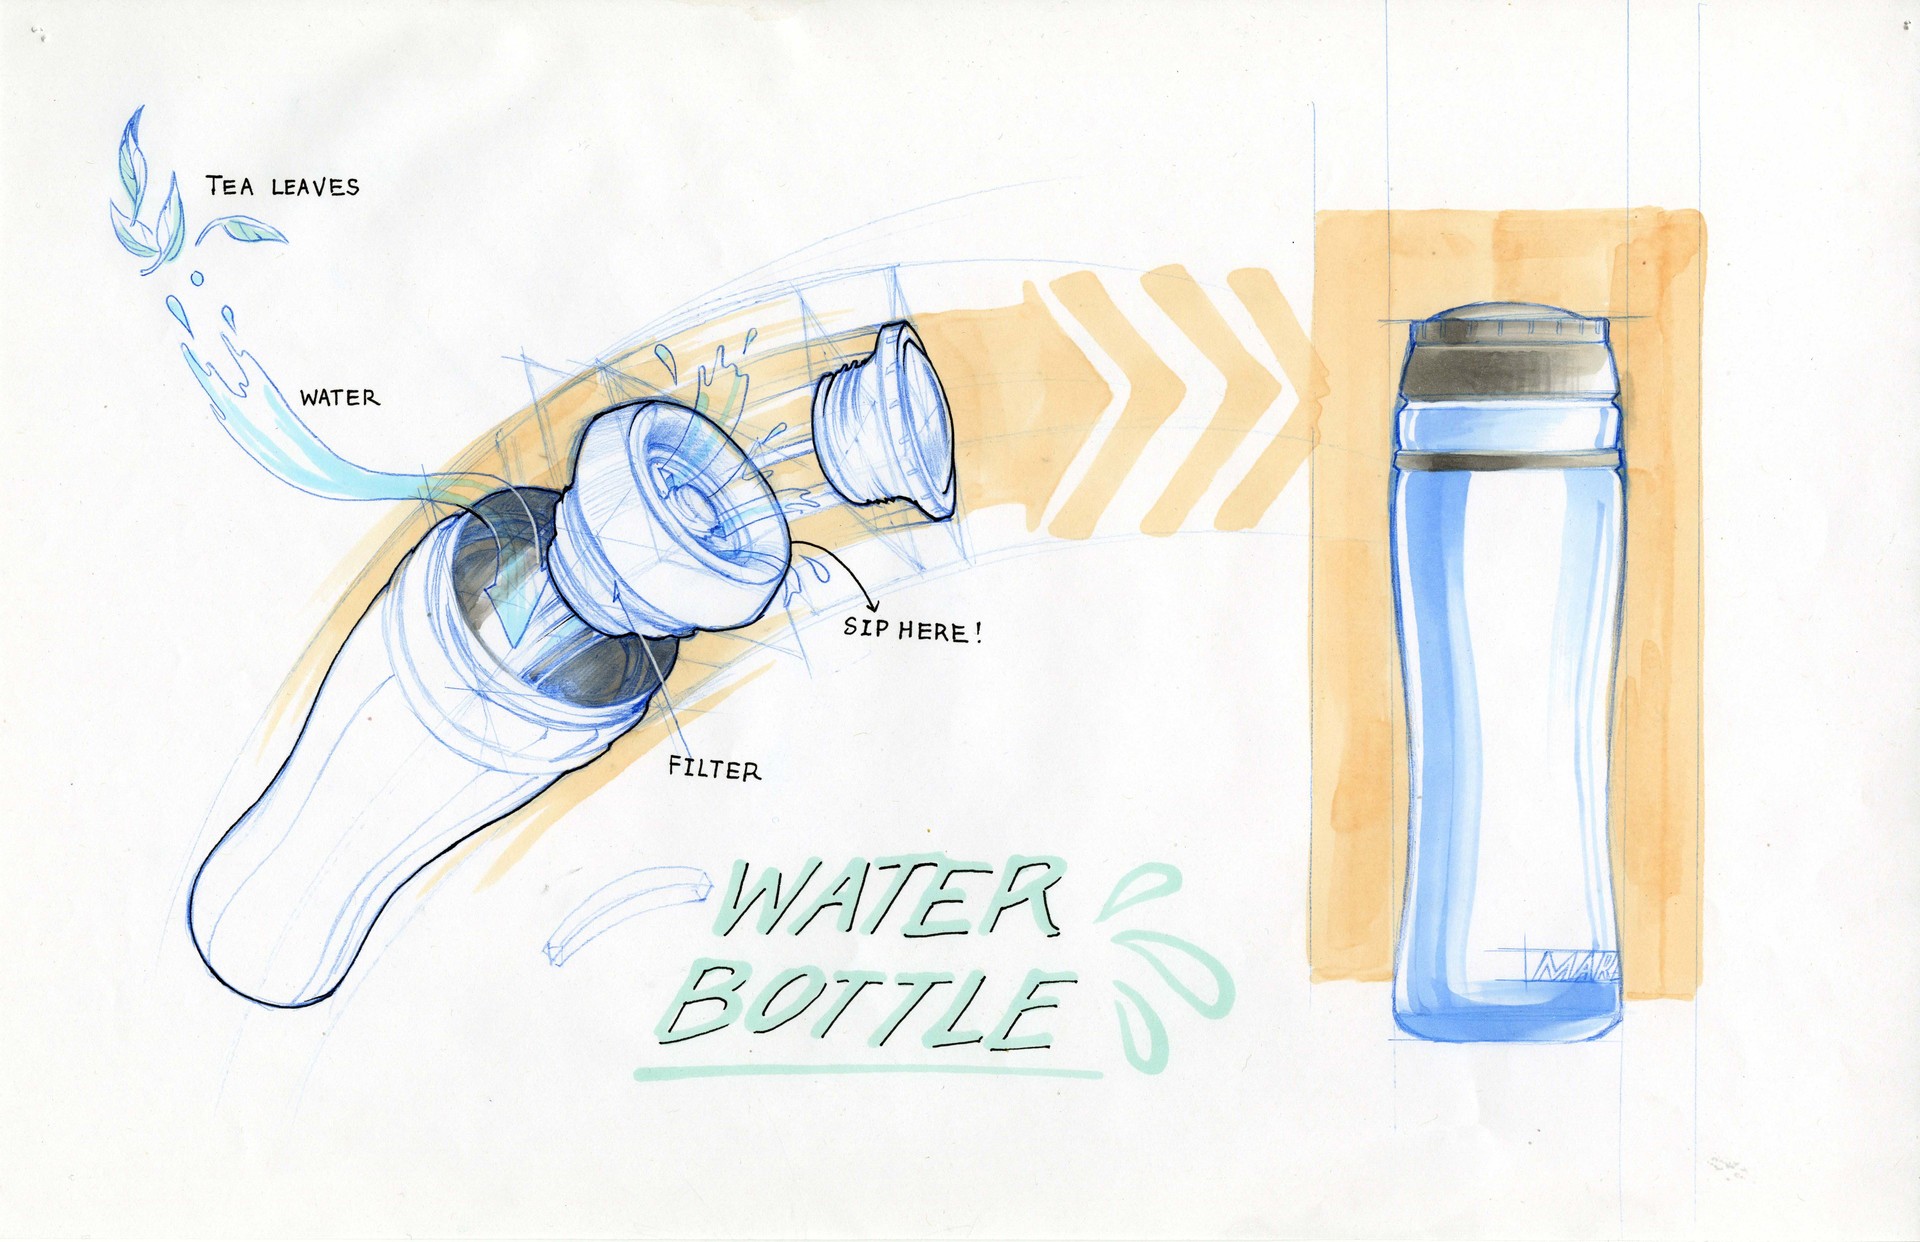 TEA LEAVES
WATER
SIP HERE!
FILTER
WATER
BOTTLE
MAR